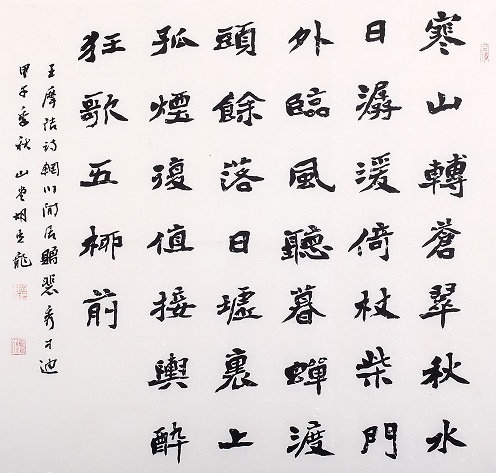 寒山轉蒼翠秋水
日潺湲倚杖柴門
外臨風聽暮蟬渡
頭餘落日墟裏上
孤煙復值接輿醉
狂歌五柳前
王摩詰詩輞川閒居贈裴秀才迪
甲午季秋山堂胡龍